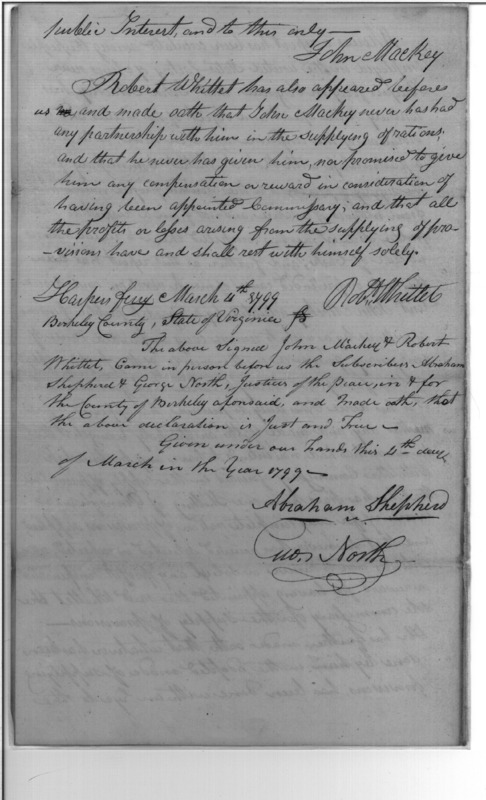 public Interest, and to this only —
John Mackey
Robert Whittet has also appeared before
us and made oath that John Mackey never has had
any partnership with him in the supplying of rations;
and that he never has given him, nor promised to give
him any compensation or reward in consideration of
having been appointed Commissary; and that all
the profits or losses arising from the supplying of pro-
-visions have and shall rest with himself solely.
Harpers ferry March 4th 1799
Robt. Whittet
Berkeley County, State of Virginia Ss
The above Signed John Mackey & Robert
Whittet, Came in person before us the Subscribers Abraham
Shepherd & George North, Justices of the Peace, in & for
the County of Berkeley aforesaid, and Made oath, that
the above declaration is Just and True —
Given under our hands this 4th day
of March in the Year 1799 —
Abraham Shepherd
Geo. North